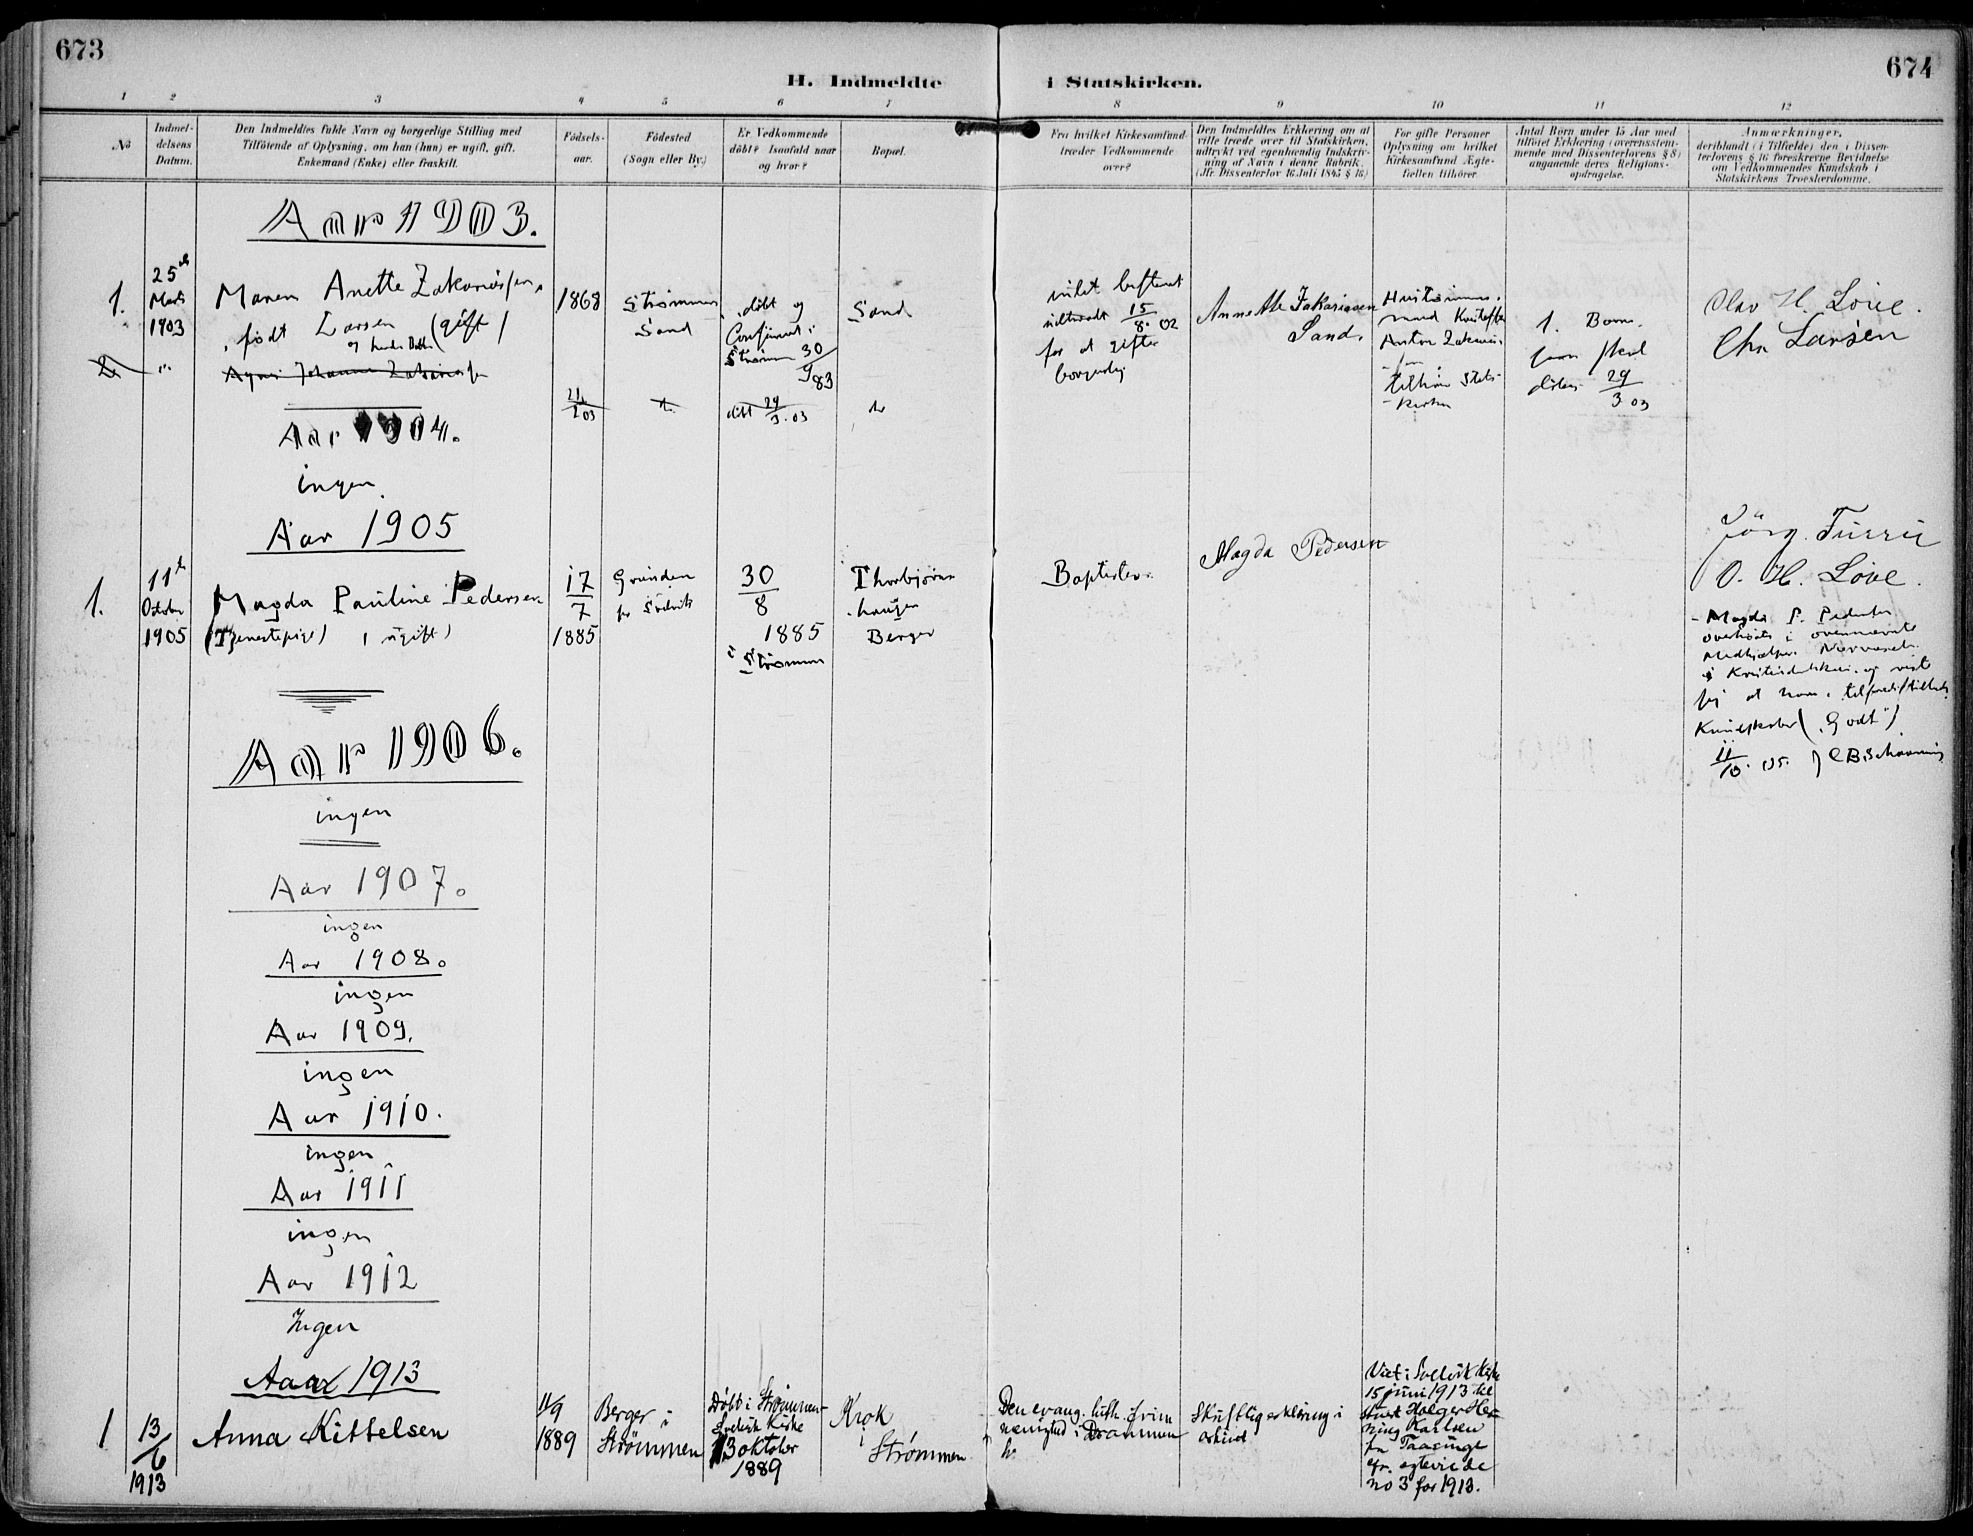 673
674
H. Indmeldte i Statskirken.
1 2 3 4 5 6 7 8 9 10 11 12
No
Indmel-
delsens
Datum.
Den Indmeldtes fulde Navn og borgerlige Stilling med
Tilföiende af Oplysning, om han (hun) er ugift, gift,
Enkemand (Enke) eller fraskilt.
Födsels-
aar.
Födested
(Sogn eller By.)
Er Vedkommende
döbt? Isaafald naar
og hvor?
Bopæl.
Fra hvilket Kirkesamfund
træder Vedkommende
over?
Den Indmeldtes Erklæring om at
ville træde over til Statskirken,
udtrykt ved egenhændig Indskriv-
ning af Navn i denne Rubrik.
(Jfr. Dissenterlov 16 Juli 1845 § 16)
For gifte Personer
Oplysning om hvilket
Kirkesamfund Ægte-
fællen tilhörer.
Antal Börn under 15 Aar med
tilföiet Erklæring (overensstem-
mende med Dissenterlovens § 8)
angaaende deres Religions-
opdragelse.
Anmærkninger,
deriblandt (i Tilfælde) den i Dissen-
terlovens § 16 foreskrevne Bevidnelse
om Vedkommendes Kundskab i
Statskirkens Troeslærdomme.
Aar 1903.
1.
25de
Marts
1903
Maren Anette Zakariassen,
født Larsen (gift)
1868
Strømmen
Sand
døbt og
Confirmert i
Strømm 30/9 83
Sand
intet bestemt
udtraadt 15/8. 02
for at gifte
borgerlig
Anne Zakariasen
Sand.
med Kristoffer
Anton
tilhører Stats-
kirken
1. Barn.
som skal
døbes 29/3 03
Olav H. Löve.
Chr Larsen
2. "
Agnes Johanne Zakariassen
2 03
døbt 29/3. 03
Aar 1904.
ingen
Aar 1905
1.
11te
October
1905
Magda Pauline Pedersen
(Tjenestepige) (ugift)
17/7
1885
Grunden
for Svelvik
30/8
1885
i Strømmen
Thorbjørns
haugen
Berger
Baptister.
Magda Pedersen
Jörg. Furru
O. H. Löve.
Magda P. Pedersen
overhørt i ovennævnte
Medhjælpers Nærværelse
i Kristendomskun. og viste
sig at have tilfredsstillende
Kundskaber ("Godt")
11/10. 05.
Aar 1906.
ingen
Aar 1907.
ingen
Aar 1908.
ingen
Aar 1909.
ingen
Aar 1910.
ingen
Aar 1911
ingen
Aar 1912
Ingen
Aar 1913
1
13/6
1913
Anna Kittelsen
11/9
1889
Berger i
Strömmen
Döbt i Strömmen
Svelvik Kirke
13 oktober
1889
Krok
i
Strömmen
Den evang. luth. frim
menighed i Drammen
Skriftlig erklæring i
arkivet
Viet i Svelvik Kirke
15 juni 1913 til
Holger Hen-
ning Karlsen
fra Taasinge
cfr. egteviede
no 3 for 1913.